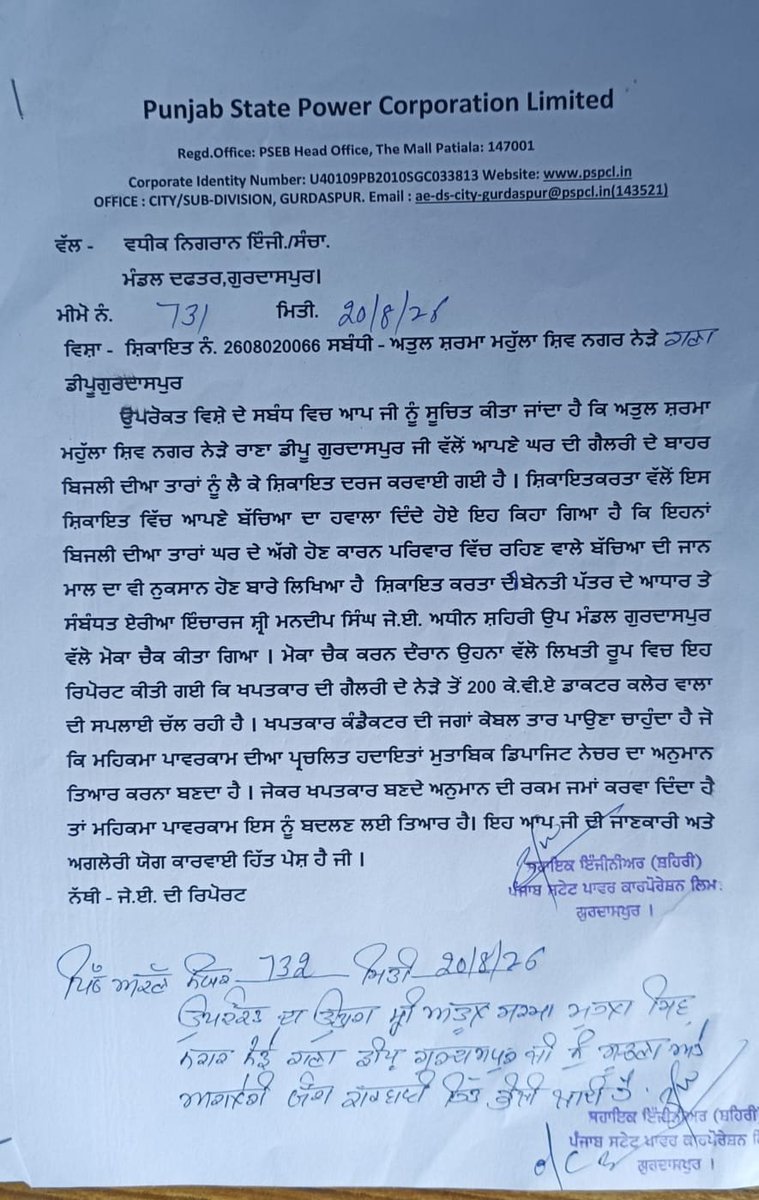 Punjab State Power Corporation Limited
Regd.Office: PSEB Head Office, The Mall Patiala: 147001
Corporate Identity Number: U40109PB2010SGC033813 Website: www.pspcl.in
OFFICE : CITY/SUB-DIVISION, GURDASPUR. Email : ae-ds-city-gurdaspur@pspcl.in(143521)
ਵੱਲ - ਵਧੀਕ ਨਿਗਰਾਨ ਇੰਜੀ./ਸੰਚਾ.
ਮੰਡਲ ਦਫਤਰ,ਗੁਰਦਾਸਪੁਰ।
ਮੀਮੋ ਨੰ. 731 ਮਿਤੀ. 20/8/26
ਵਿਸ਼ਾ - ਸ਼ਿਕਾਇਤ ਨੰ. 2608020066 ਸਬੰਧੀ - ਅਤੁਲ ਸ਼ਰਮਾ ਮਹੁੱਲਾ ਸ਼ਿਵ ਨਗਰ ਨੇੜੇ ਰਾਣਾ
ਡੀਪੂਗੁਰਦਾਸਪੁਰ
ਉਪਰੋਕਤ ਵਿਸ਼ੇ ਦੇ ਸਬੰਧ ਵਿਚ ਆਪ ਜੀ ਨੂੰ ਸੂਚਿਤ ਕੀਤਾ ਜਾਂਦਾ ਹੈ ਕਿ ਅਤੁਲ ਸ਼ਰਮਾ
ਮਹੁੱਲਾ ਸ਼ਿਵ ਨਗਰ ਨੇੜੇ ਰਾਣਾ ਡੀਪੂ ਗੁਰਦਾਸਪੁਰ ਜੀ ਵੱਲੋਂ ਆਪਣੇ ਘਰ ਦੀ ਗੈਲਰੀ ਦੇ ਬਾਹਰ
ਬਿਜਲੀ ਦੀਆ ਤਾਰਾਂ ਨੂੰ ਲੈ ਕੇ ਸ਼ਿਕਾਇਤ ਦਰਜ ਕਰਵਾਈ ਗਈ ਹੈ । ਸ਼ਿਕਾਇਤਕਰਤਾ ਵੱਲੋਂ ਇਸ
ਸ਼ਿਕਾਇਤ ਵਿੱਚ ਆਪਣੇ ਬੱਚਿਆ ਦਾ ਹਵਾਲਾ ਦਿੰਦੇ ਹੋਏ ਇਹ ਕਿਹਾ ਗਿਆ ਹੈ ਕਿ ਇਹਨਾਂ
ਬਿਜਲੀ ਦੀਆ ਤਾਰਾਂ ਘਰ ਦੇ ਅੱਗੇ ਹੋਣ ਕਾਰਨ ਪਰਿਵਾਰ ਵਿੱਚ ਰਹਿਣ ਵਾਲੇ ਬੱਚਿਆ ਦੀ ਜਾਨ
ਮਾਲ ਦਾ ਵੀ ਨੁਕਸਾਨ ਹੋਣ ਬਾਰੇ ਲਿਖਿਆ ਹੈ ਸ਼ਿਕਾਇਤ ਕਰਤਾ ਦੀ ਬੇਨਤੀ ਪੱਤਰ ਦੇ ਆਧਾਰ ਤੇ
ਸੰਬੰਧਤ ਏਰੀਆ ਇੰਚਾਰਜ ਸ਼੍ਰੀ ਮਨਦੀਪ ਸਿੰਘ ਜੇ.ਈ. ਅਧੀਨ ਸ਼ਹਿਰੀ ਉਪ ਮੰਡਲ ਗੁਰਦਾਸਪੁਰ
ਵੱਲੋ ਮੋਕਾ ਚੈਕ ਕੀਤਾ ਗਿਆ । ਮੋਕਾ ਚੈਕ ਕਰਨ ਦੌਰਾਨ ਉਹਨਾ ਵੱਲੋ ਲਿਖਤੀ ਰੂਪ ਵਿਚ ਇਹ
ਰਿਪੋਰਟ ਕੀਤੀ ਗਈ ਕਿ ਖਪਤਕਾਰ ਦੀ ਗੈਲਰੀ ਦੇ ਨੇੜੇ ਤੋਂ 200 ਕੇ.ਵੀ.ਏ ਡਾਕਟਰ ਕਲੇਰ ਵਾਲਾ
ਦੀ ਸਪਲਾਈ ਚੱਲ ਰਹੀ ਹੈ । ਖਪਤਕਾਰ ਕੰਡੈਕਟਰ ਦੀ ਜਗਾਂ ਕੇਬਲ ਤਾਰ ਪਾਉਣਾ ਚਾਹੁੰਦਾ ਹੈ ਜੋ
ਕਿ ਮਹਿਕਮਾ ਪਾਵਰਕਾਮ ਦੀਆ ਪ੍ਰਚਲਿਤ ਹਦਾਇਤਾਂ ਮੁਤਾਬਿਕ ਡਿਪਾਜਿਟ ਨੇਚਰ ਦਾ ਅਨੁਮਾਨ
ਤਿਆਰ ਕਰਨਾ ਬਣਦਾ ਹੈ । ਜੇਕਰ ਖਪਤਕਾਰ ਬਣਦੇ ਅਨੁਮਾਨ ਦੀ ਰਕਮ ਜਮਾਂ ਕਰਵਾ ਦਿੰਦਾ ਹੈ
ਤਾਂ ਮਹਿਕਮਾ ਪਾਵਰਕਾਮ ਇਸ ਨੂੰ ਬਦਲਣ ਲਈ ਤਿਆਰ ਹੈ। ਇਹ ਆਪ ਜੀ ਦੀ ਜਾਣਕਾਰੀ ਅਤੇ
ਅਗਲੇਰੀ ਯੋਗ ਕਾਰਵਾਈ ਹਿੱਤ ਪੇਸ਼ ਹੈ ਜੀ ।
ਨੱਥੀ - ਜੇ.ਈ. ਦੀ ਰਿਪੋਰਟ
ਸਹਾਇਕ ਇੰਜੀਨੀਅਰ (ਸ਼ਹਿਰੀ)
ਪੰਜਾਬ ਸਟੇਟ ਪਾਵਰ ਕਾਰਪੋਰੇਸ਼ਨ ਲਿਮ:
ਗੁਰਦਾਸਪੁਰ ।
ਪਿੱਠ ਅੰਕਣ ਨੰਬਰ 732 ਮਿਤੀ 20/8/26
ਉਪਰੋਕਤ ਦਾ ਉਤਾਰਾ ਸ਼੍ਰੀ ਅਤੁਲ ਸ਼ਰਮਾ ਮੁਹੱਲਾ ਸ਼ਿਵ
ਨਗਰ ਨੇੜੇ ਰਾਣਾ ਡੀਪੂ ਗੁਰਦਾਸਪੁਰ ਜੀ ਨੂੰ ਸੂਚਨਾ ਅਤੇ
ਅਗਲੇਰੀ ਯੋਗ ਕਾਰਵਾਈ ਹਿੱਤ ਭੇਜੀ ਜਾਂਦੀ ਹੈ.
ਸਹਾਇਕ ਇੰਜੀਨੀਅਰ (ਸ਼ਹਿਰੀ)
ਪੰਜਾਬ ਸਟੇਟ ਪਾਵਰ ਕਾਰਪੋਰੇਸ਼ਨ
ਗੁਰਦਾਸਪੁਰ ।